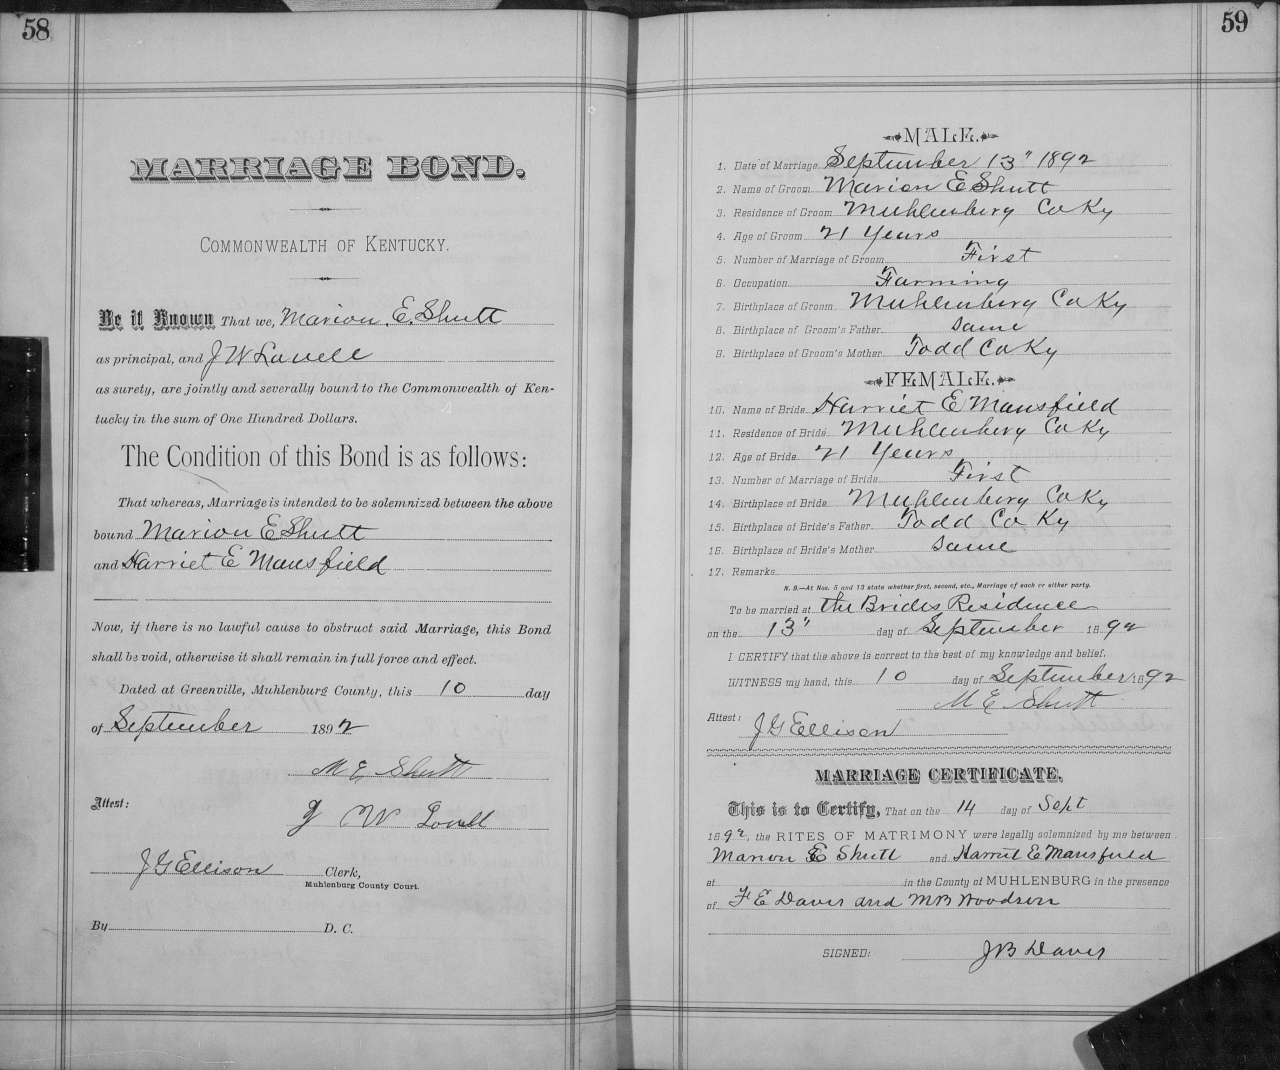 58
MARRIAGE BOND.
COMMONWEALTH OF KENTUCKY.
Be it Known That we, Marion. E. Shutt
as principal, and J W Lovell
as surety, are jointly and severally bound to the Commonwealth of Ken-
tucky in the sum of One Hundred Dollars.
The Condition of this Bond is as follows:
That whereas, Marriage is intended to be solemnized between the above
bound Marion E Shutt
and Harriet E Mansfield
Now, if there is no lawful cause to obstruct said Marriage, this Bond
shall be void, otherwise it shall remain in full force and effect.
Dated at Greenville, Muhlenburg County, this 10 day
of September 1892
M E Shutt
Attest:
J W Lovell
J G Ellison Clerk,
Muhlenburg County Court.
By D. C.
59
MALE.
1. Date of Marriage September 13" 1892
2. Name of Groom Marion E Shutt
3. Residence of Groom Muhlenberg Co Ky
4. Age of Groom 21 Years
5. Number of Marriage of Groom First
6. Occupation Farming
7. Birthplace of Groom Muhlenberg Co Ky
8. Birthplace of Groom's Father Same
9. Birthplace of Groom's Mother Todd Co Ky
FEMALE.
10. Name of Bride Harriet E Mansfield
11. Residence of Bride Muhlenberg Co Ky
12. Age of Bride 21 Years
13. Number of Marriage of Bride First
14. Birthplace of Bride Muhlenberg Co Ky
15. Birthplace of Bride's Father Todd Co Ky
16. Birthplace of Bride's Mother Same
17. Remarks
N. B.—At Nos. 5 and 13 state whether first, second, etc., Marriage of each or either party.
To be married at the Brides Residence
on the 13" day of September 1892
I CERTIFY that the above is correct to the best of my knowledge and belief.
WITNESS my hand, this 10 day of September 1892
M E Shutt
Attest: J G Ellison
MARRIAGE CERTIFICATE.
This is to Certify, That on the 14 day of Sept
1892, the RITES OF MATRIMONY were legally solemnized by me between
Marion E Shutt and Harriet E Mansfield
at in the County of MUHLENBURG in the presence
of F E Davis and M B Woodson
SIGNED: J B Davis